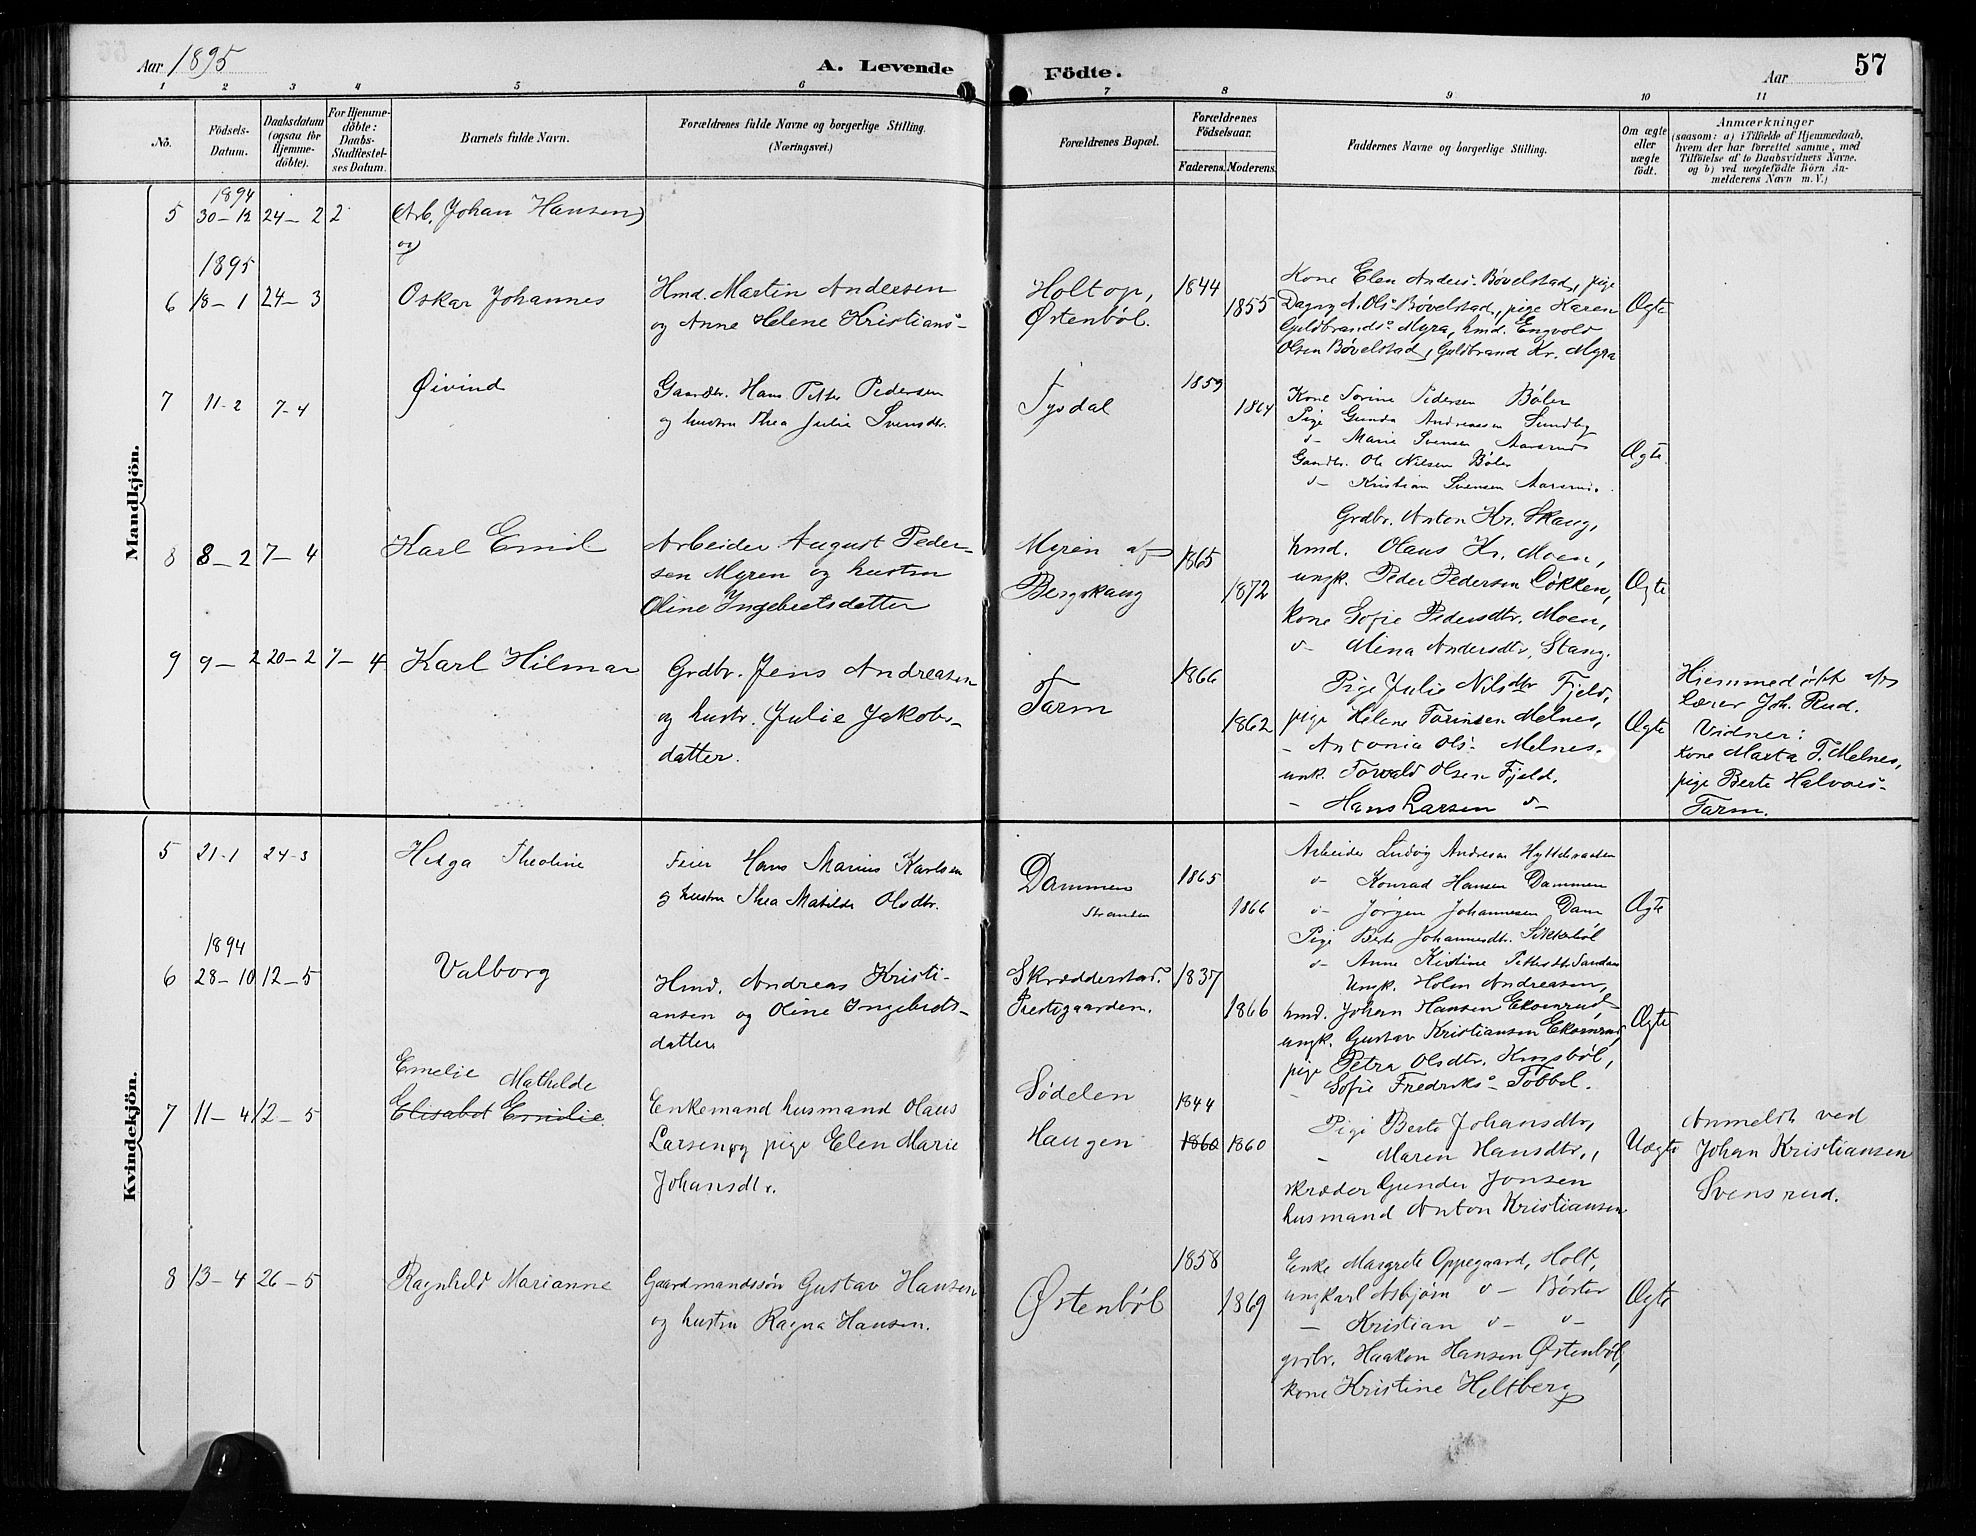 Aar 1895
A. Levende
Födte.
Aar
57
1 2 3 4 5 6 7 8 9 10 11
No.
Födsels-
Datum.
Daabsdatum
(ogsaa for
Hjemme-
döbte).
For Hjemme-
döbte:
Daabs-
Stadfæstel-
ses Datum.
Barnets fulde Navn.
Forældrenes fulde Navne og borgerlige Stilling.
(Næringsvei.)
Forældrenes Bopæl.
Forældrenes
Födselsaar.
Faderens. Moderens.
Faddernes Navne og borgerlige Stilling.
Om ægte
eller
uægte
födt.
Anmærkninger
(saasom: a) i Tilfælde af Hjemmedaab,
hvem der har forrettet samme, med
Tilföielse af to Daabsvidners Navne.
og b) ved uægtefödte Börn An-
melderens Navn m. V.)
Mandkjön.
1894
5 30-12 24-2 2 (Arb. Johan Hansen)
og
1895
6 18-1 24-3
Oskar Johannes
Hmd. Martin Andersen
og Anne Helene Kristians-
Holtop,
Østenbøl.
1844
1855
Kone Elen Anders. Bøvelstad, pige
Dagny A. Ols. Bøvelstad, pige Karen
Guldbrands. Myra, hmd. Engvold
Olsen Bøvelstad, Guldbrand Kr. Myra
Ægte
7 11-2 7-4
Øivind
Gaardbr. Hans Petter Pedersen
og hustru Thea Julie Svensdtr.
Tysdal
1859
1864
Kone Sorine Pedersen Bøler
Pige Gunda Andreassen Sundby
d- Marie Svensen Aarsrud
Gaardbr. Ole Nilsen Bøler
d- Kristian Svensen Aarsrud.
Ægte
8 8-2 7-4
Karl Emil
Arbeider August Peder-
sen Myren og hustru
Oline Ingebretsdatter
Myren af
Bergskaug
1865
1872
Grdbr. Anton Kr. Skaug,
hmd. Olaus Kr. Moen,
ungk. Peder Pedersen Løkken,
kone Sofie Pedersdtr. Moen,
d- Mina Andersdtr. Stang.
Ægte
9 9-2 20-2 7-4
Karl Hilmar
Grdbr. Jens Andreasen
og hustr. Julie Jakobs-
datter.
Tarm
1866
1862
Pige Julie Nilsdtr Fjeld,
pige Helene Torinsen Melnes,
- Antonia Ols- Melnes.
unk. Torvald Olsen Fjeld.
- Hans Larsen d-
Ægte
Hjemmedøbt af
lærer Joh. Rud.
Vidner:
Kone Marta T. Melnes,
pige Berte Halvors-
Tarm.
Kvindekjön.
5 21-1 24-3
Helga Theoline
Feier Hans Marius Karlsen
og hustru Thea Matilde Olsdtr.
Dammen
Stranden
1865
1866
Arbeider Ludvig Andresen Hytteraaten
d- Konrad Hansen Dammen
d- Jørgen Johannesen Dam
Pige Berte Johannesdtr. Sikkebøl
d- Anne Kistine Pettersdtr. Sanden
Ægte
1894
6 28-10 12-5
Valborg
Hmd. Andreas Kristi-
ansen og Oline Ingebrets-
datter
Skrædderstad.
Prestegaarden.
1837
1866
Ungk. Holm Andreasen,
hmd. Johan Hansen Ekornrud
ungk. Gustav Kristiansen Ekornrud,
pige Petra Olsdtr. Kingsbøl,
- Sofie Fredriks- Tobbøl.
Ægte
7 11-4 12-5
Emelie Mathilde
Elisabet Emilie
Enkemand husmand Olaus
Larsen og pige Elen Marie
Johansdtr.
Sødelen
Haugen
1844
1860 1860
Pige Berte Johansdtr,
- Maren Hansdtr,
skræder Gunder Jonsen
husmand Anton Kristiansen
Uægte
Anmeldt ved
Johan Kristiansen
Svensrud.
8 13-4 26-5
Ragnhild Marianne
Gaardmandssøn Gustav Hansen
og hustru Ragna Hansen.
Østenbøl
1858
1869
Enke Margrete Oppegaard, Holt,
ungkarl Asbjørn d- Børter
- Kristian d- d-
grdbr. Haakon Hansen Østenbøl,
kone Kristine Heltberg
Ægte